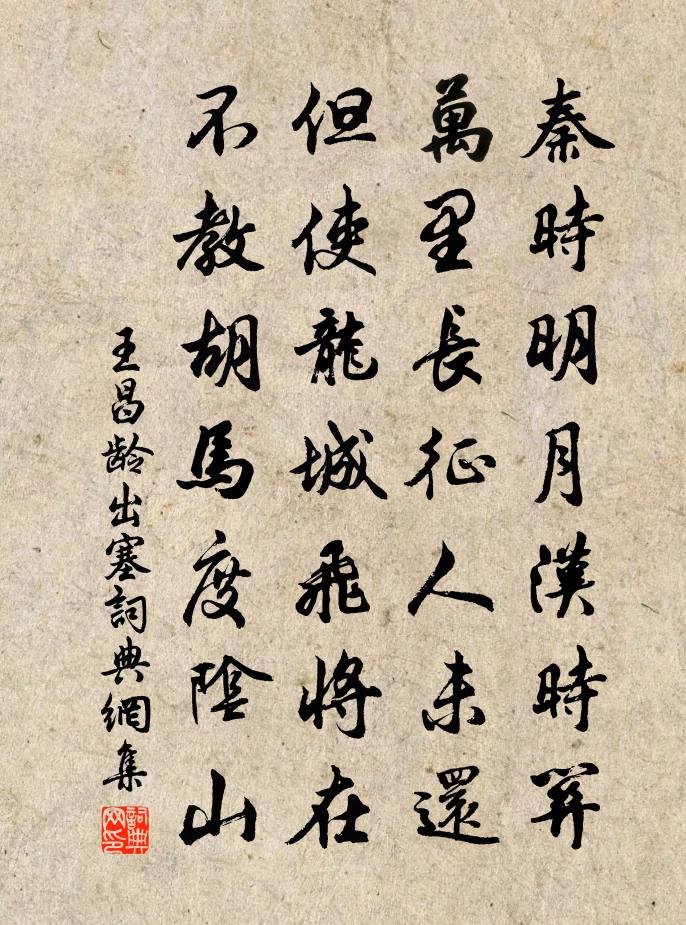 秦時明月漢時関
萬里長征人未還
但使龍城飛將在
不教胡馬度陰山
王昌龄出塞詞典網集
詞典网印